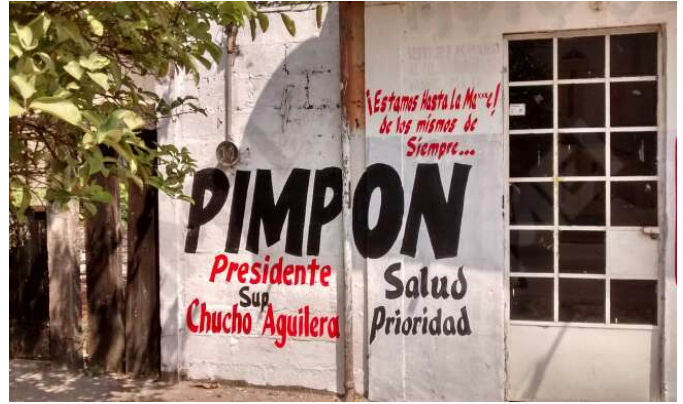 ¡Estamos Hasta La Ma***e!
de los mismos de
Siempre...
PIMPON
Presidente
Sup
Chucho Aguilera
Salud
Prioridad